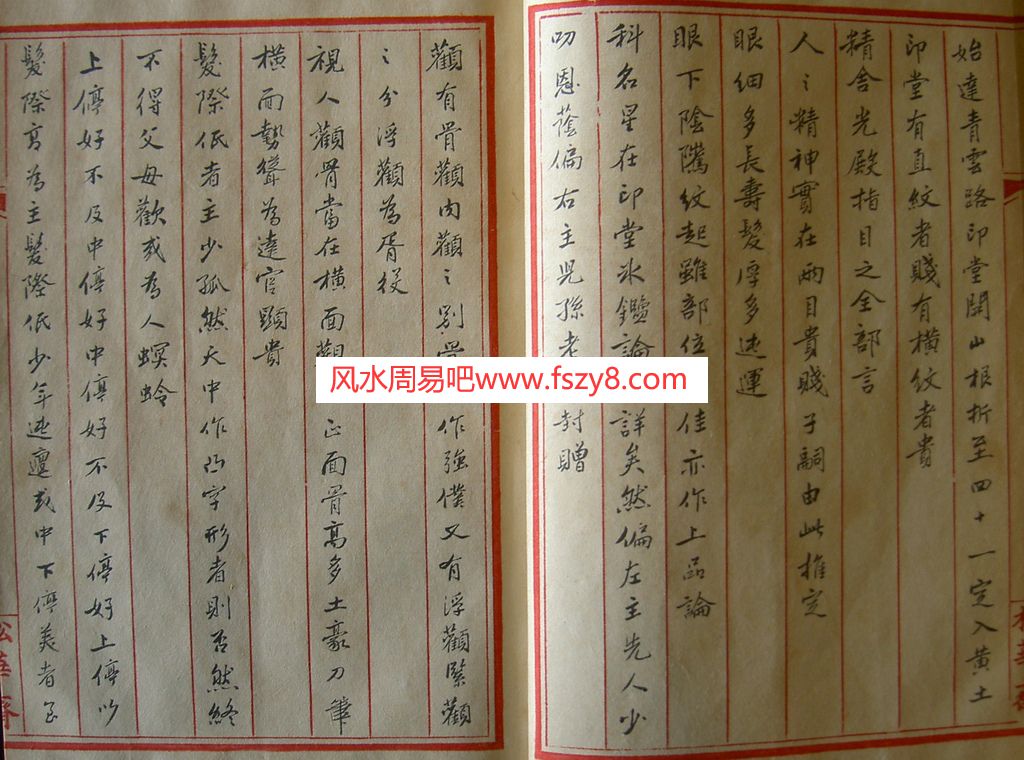 始達青雲路印堂開山根折至四十一定入黃土
印堂有直紋者賤有橫紋者貴
精舍光殿指目之全部言
人之精神實在兩目貴賤子嗣由此推定
眼細多長壽髮厚多迍運
眼下陰隲紋起雖部位佳亦作上品論
科名星在印堂冰鑑論詳矣然偏左主先人少
叨恩蔭偏右主兒孫老封贈
顴有骨顴肉顴之別作強僕又有浮顴緊顴
之分浮顴為胥役
視人顴骨當在橫面顴正面骨高多土豪刀筆
橫而勢聳為達官顯貴
髮際低者主少孤然天中作凸字形者則否然終
不得父母歡或為人螟蛉
上停好不及中停好中停好不及下停好上停以
髮際高為主髮際低少年迍邅或中下停美者
松華齋
风水周易吧www.fszy8.com